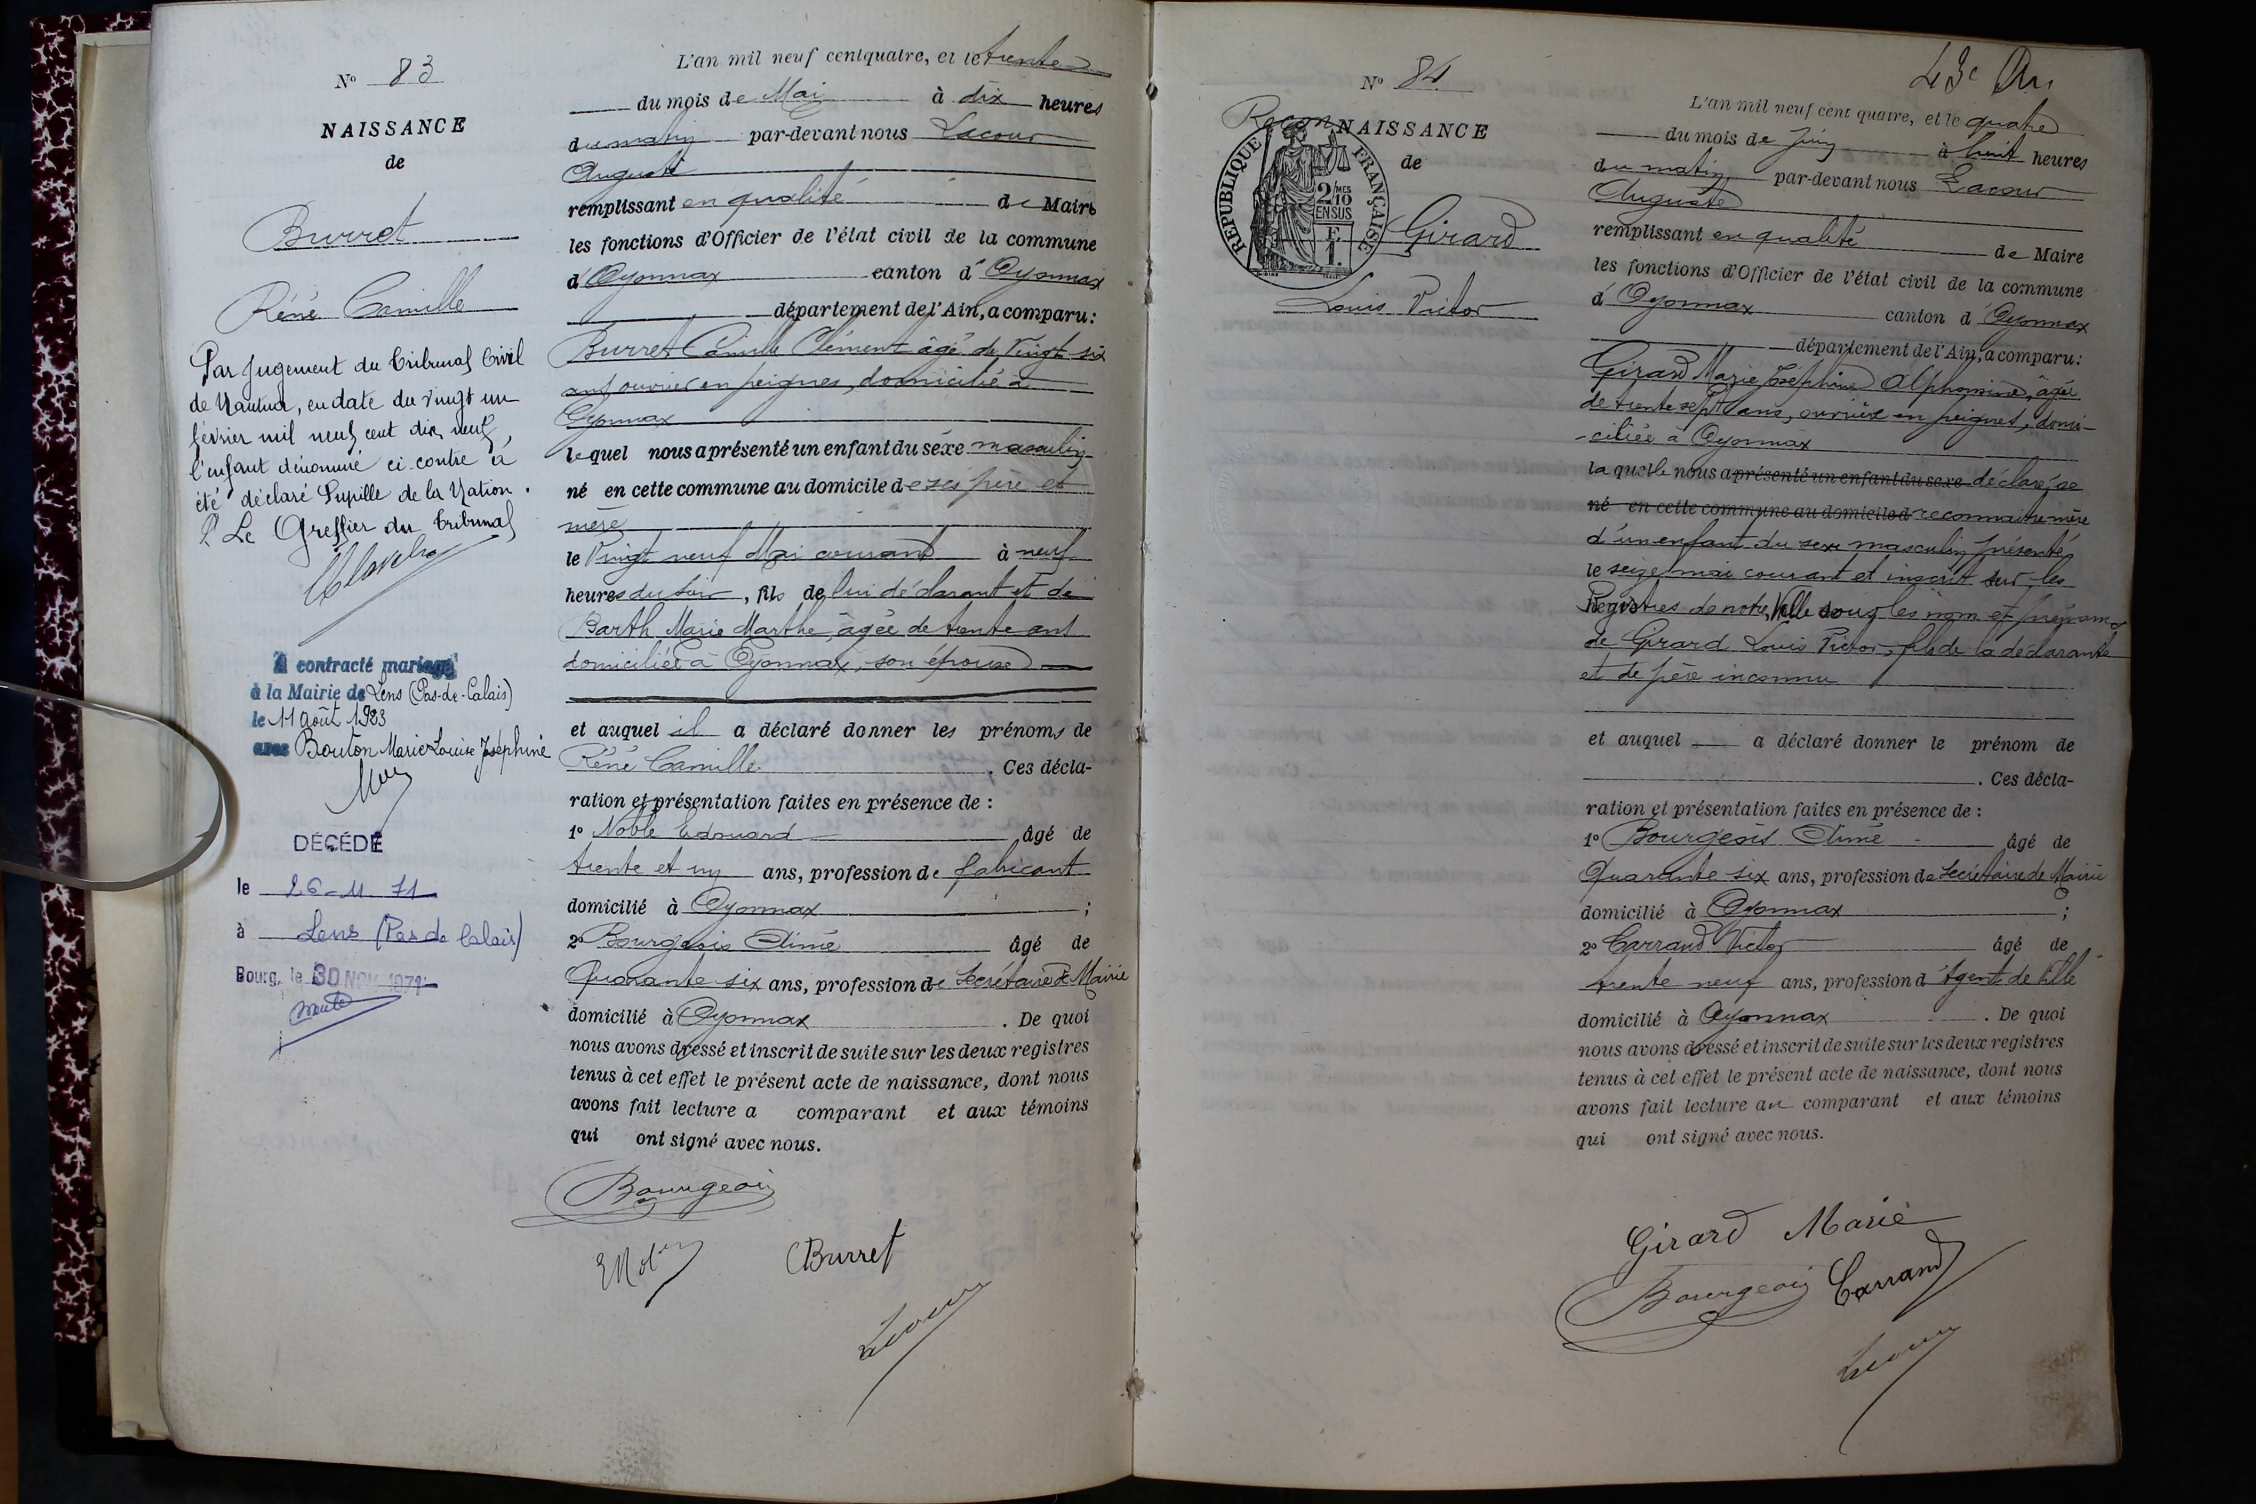 N° 83
NAISSANCE
de
Burret
Réné Camille
Par Jugement du Tribunal Civil
de Nantua, en date du vingt un
février mil neuf cent dix neuf,
l'enfant dénommé ci-contre a
été déclaré Pupille de la Nation.
Le Greffier du Tribunal
A contracté mariage
à la Mairie de Lens (Pas-de-Calais)
le 11 août 1923
avec Bouton Marie Louise Joséphine
DÉCÉDÉ
le 26-11 71
à Lens (Pas de Calais)
Bourg, le 30 NOV 1971
L'an mil neuf cent quatre, et le trente
du mois de Mai à dix heures
du matin par-devant nous Lacour
Auguste
remplissant en qualité de Maire
les fonctions d'Officier de l'état civil de la commune
d'Oyonnax canton d'Oyonnax
département de l'Ain, a comparu:
Burret Camille Clément âgé de Vingt six
ans ouvrier en peignes, domicilié à
Oyonnax
lequel nous a présenté un enfant du sexe masculin
né en cette commune au domicile de ses père et
mère
le Vingt neuf Mai courant à neuf
heures du soir, fils de lui déclarant et de
Barth Marie Marthe, âgée de trente ans
domiciliée à Oyonnax, son épouse
et auquel il a déclaré donner les prénoms de
Réné Camille. Ces décla-
ration et présentation faites en présence de :
1° Noble Edouard âgé de
trente et un ans, profession de fabricant
domicilié à Oyonnax ;
2° Bourgeois Aimé âgé de
Quarante-six ans, profession de Secrétaire de Mairie
domicilié à Oyonnax . De quoi
nous avons dressé et inscrit de suite sur les deux registres
tenus à cet effet le présent acte de naissance, dont nous
avons fait lecture a comparant et aux témoins
qui ont signé avec nous.
Bourgeois
CBurret
Lacour
N° 84
Recon NAISSANCE
de
RÉPUBLIQUE FRANÇAISE
2/10 MES
EN SUS
Girard
Louis Victor
L'an mil neuf cent quatre, et le quatre
du mois de Juin à huit heures
du matin par-devant nous Lacour
Auguste
remplissant en qualité de Maire
les fonctions d'Officier de l'état civil de la commune
d'Oyonnax canton d'Oyonnax
département de l'Ain, a comparu:
Girard Marie Joséphine Alphonsine, âgée
de trente sept ans, ouvrière en peignes, domi-
-ciliée à Oyonnax
laquelle nous a présenté un enfant du sexe déclaré se
né en cette commune au domicile d reconnaitre mère
d'un enfant du sexe masculin présenté
le seize mai courant et inscrit sur les
Registres de notre Ville sous les nom et prénoms
de Girard Louis Victor, fils de la déclarante
et de père inconnu
et auquel a déclaré donner le prénom de
. Ces décla-
ration et présentation faites en présence de :
1° Bourgeois Aimé âgé de
Quarante six ans, profession de Secrétaire de Mairie
domicilié à Oyonnax ;
2° Carrand Victor âgé de
trente neuf ans, profession d'Agent de Ville
domicilié à Oyonnax . De quoi
nous avons dressé et inscrit de suite sur les deux registres
tenus à cet effet le présent acte de naissance, dont nous
avons fait lecture au comparant et aux témoins
qui ont signé avec nous.
Girard Marie
Bourgeois Carrand
Lacour